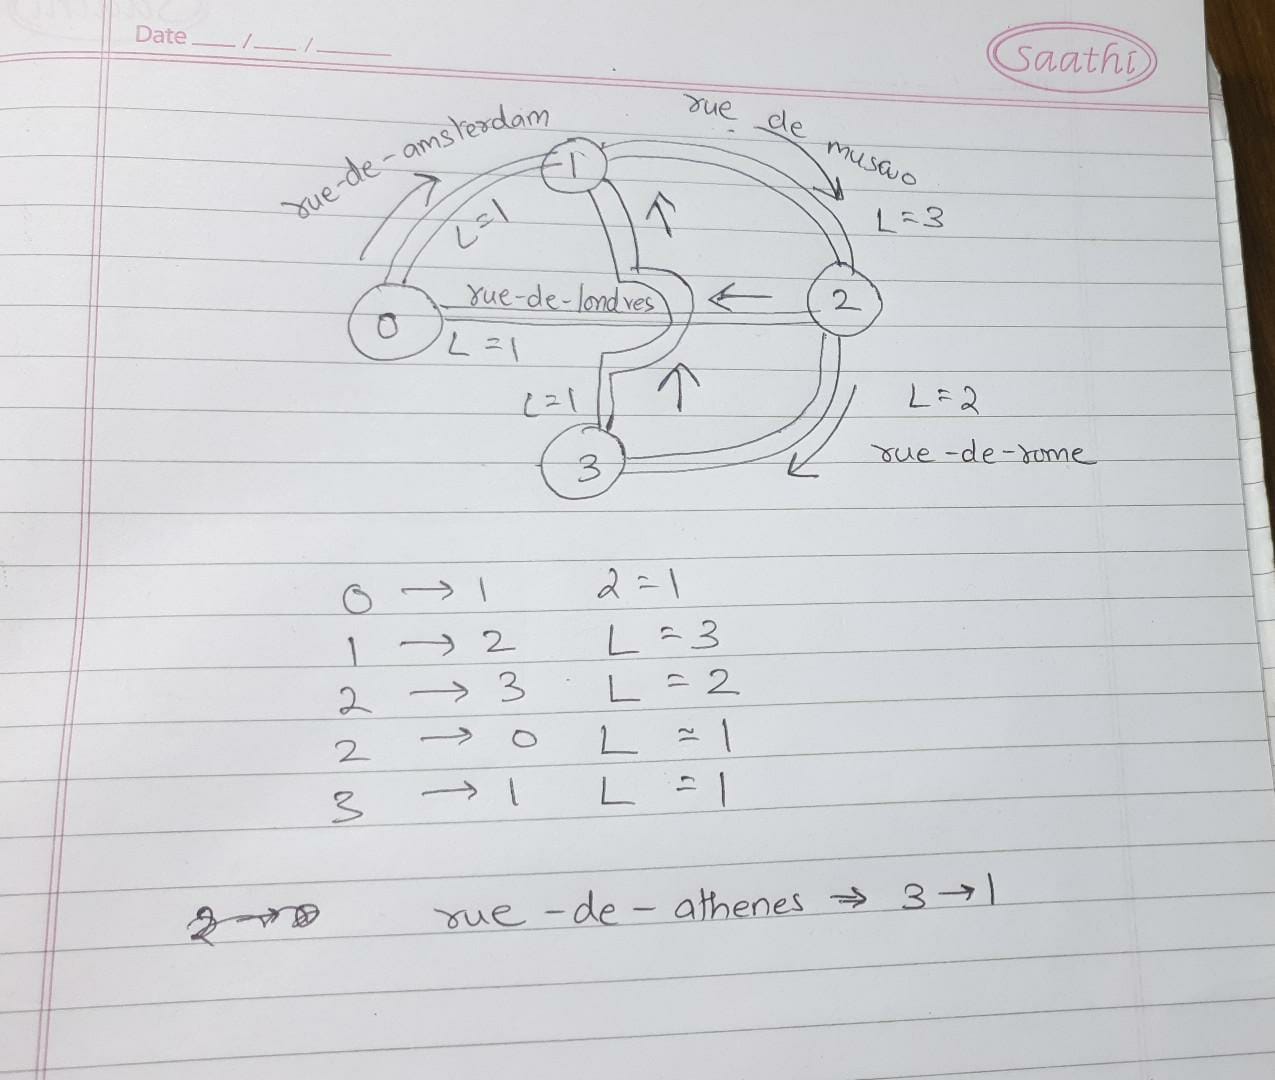 Date ___/___/___
Saathi
rue-de-amsterdam
rue de musao
1
L=1
L=3
0
rue-de-londres
2
L=1
L=1
L=2
3
rue-de-rome
0 → 1 2=1
1 → 2 L=3
2 → 3 L=2
2 → 0 L=1
3 → 1 L=1
rue-de-athenes ⇒ 3→1